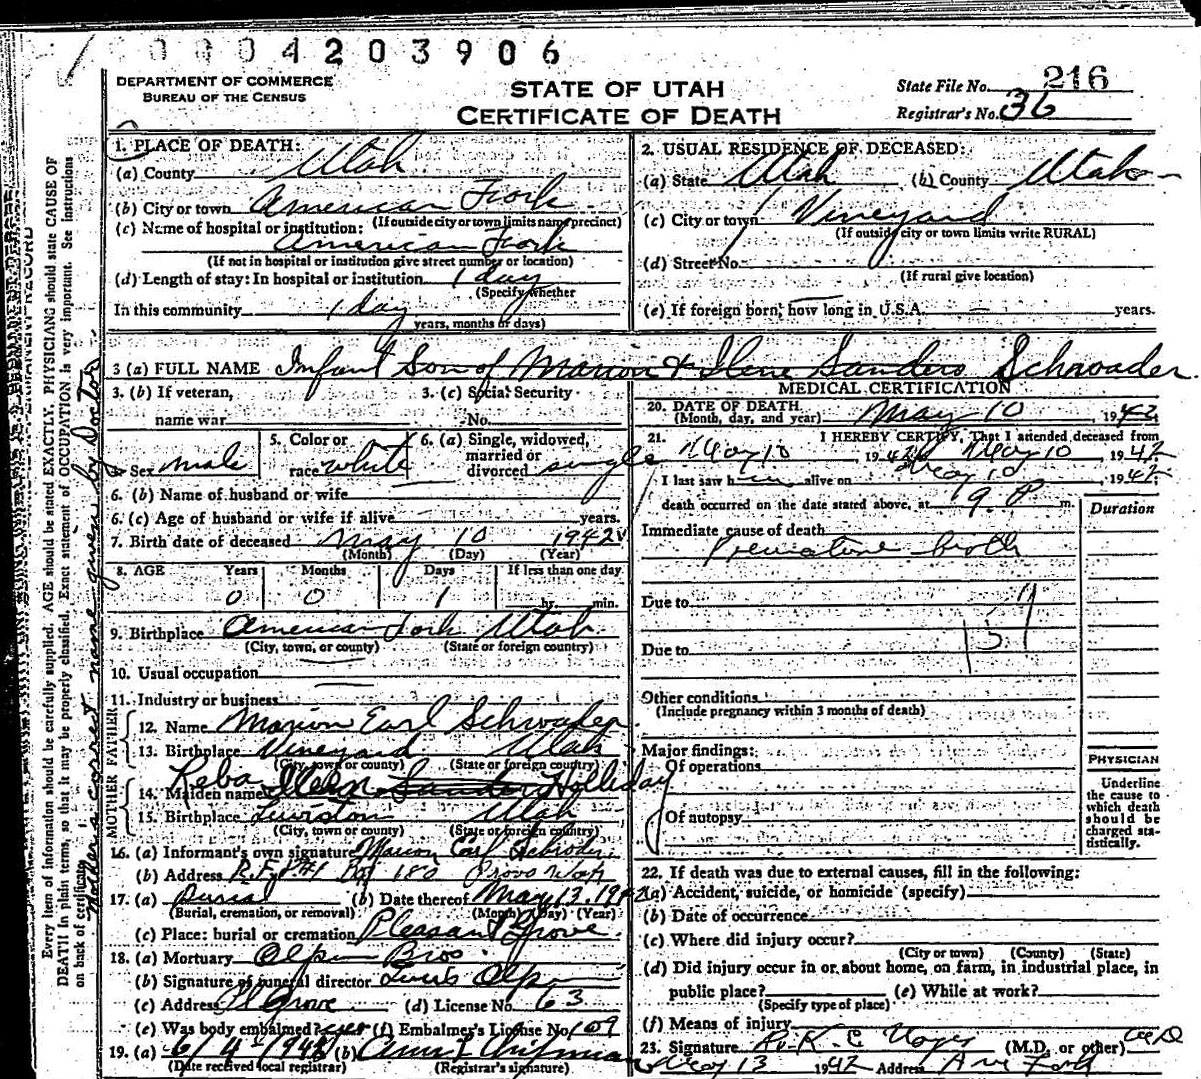 0004203906
DEPARTMENT OF COMMERCE
BUREAU OF THE CENSUS
STATE OF UTAH
CERTIFICATE OF DEATH
State File No. 216
Registrar's No. 36
1. PLACE OF DEATH:
(a) County Utah
(b) City or town American Fork
(If outside city or town limits name precinct)
(c) Name of hospital or institution:
American Fork
(If not in hospital or institution give street number or location)
(d) Length of stay: In hospital or institution 1 day
(Specify whether
In this community 1 day
years, months or days)
2. USUAL RESIDENCE OF DECEASED:
(a) State Utah (b) County Utah
(c) City or town Vineyard
(If outside city or town limits write RURAL)
(d) Street No.
(If rural give location)
(e) If foreign born, how long in U.S.A. — years.
3 (a) FULL NAME Infant Son of Marion & Ilene Sanders Schroader.
3. (b) If veteran,
name war
3. (c) Social Security
No.
4. Sex male
5. Color or
race white
6. (a) Single, widowed,
married or
divorced single
6. (b) Name of husband or wife
6. (c) Age of husband or wife if alive years.
7. Birth date of deceased May 10 1942
(Month) (Day) (Year)
8. AGE Years Months Days If less than one day
0 0 1 hr. min.
9. Birthplace American Fork Utah
(City, town, or county) (State or foreign country)
10. Usual occupation
11. Industry or business
FATHER
12. Name Marion Earl Schroader
13. Birthplace Vineyard Utah
(City, town or county) (State or foreign country)
MOTHER
Reba Holliday
14. Maiden name Sanders
15. Birthplace Lewiston Utah
(City, town or county) (State or foreign country)
16. (a) Informant's own signature Marion Earl Schroder
(b) Address R.F.D #1 Box 180 Provo Utah
17. (a) Burial (b) Date thereof May 13, 1942
(Burial, cremation, or removal) (Month) (Day) (Year)
(c) Place: burial or cremation Pleasant Grove.
18. (a) Mortuary Olpin Bros
(b) Signature of funeral director Olpin
(c) Address Pl Grove (d) License No. 63
(e) Was body embalmed? yes (f) Embalmer's License No. 109
19. (a) 6/4-1942 (b) Chipman
(Date received local registrar) (Registrar's signature)
MEDICAL CERTIFICATION
20. DATE OF DEATH
(Month, day, and year) May 10 1942
21. I HEREBY CERTIFY, That I attended deceased from
May 10 1942 May 10 1942
I last saw him alive on May 10 1942
death occurred on the date stated above, at 9. P m.
Duration
Immediate cause of death
Premature birth
Due to
Due to
Other conditions
(Include pregnancy within 3 months of death)
Major findings:
Of operations
Of autopsy
PHYSICIAN
Underline
the cause to
which death
should be
charged sta-
tistically.
22. If death was due to external causes, fill in the following:
(a) Accident, suicide, or homicide (specify)
(b) Date of occurrence
(c) Where did injury occur?
(City or town) (County) (State)
(d) Did injury occur in or about home, on farm, in industrial place, in
public place? (e) While at work?
(Specify type of place)
(f) Means of injury
23. Signature (M.D. or other) MD
May 13 1942 Address Am Fork
Every item of information should be carefully supplied. AGE should be stated EXACTLY. PHYSICIANS should state CAUSE OF
DEATH in plain terms, so that it may be properly classified. Exact statement of OCCUPATION is very important. See instructions
on back of certificate.
Mothers correct name given by Doctor